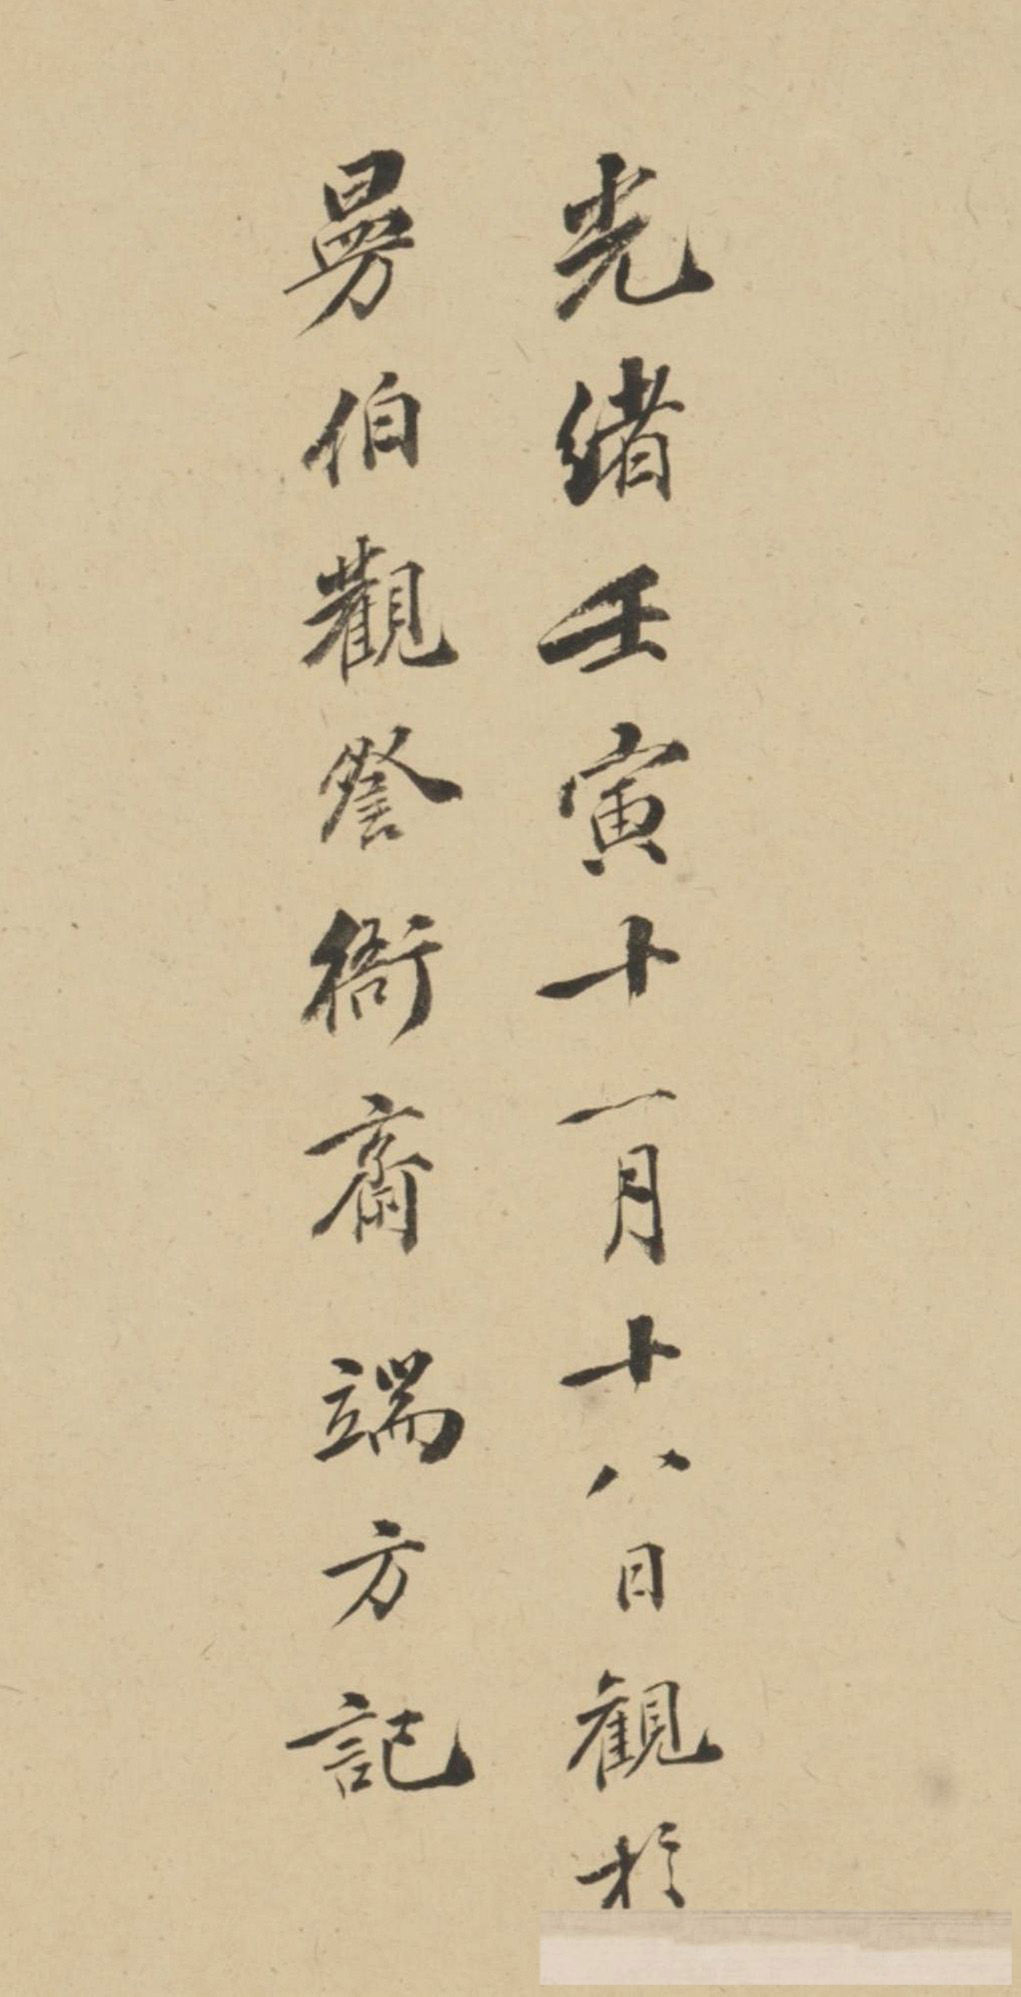 光緒壬寅十一月十八日觀於
曼伯觀詧衙齋端方記